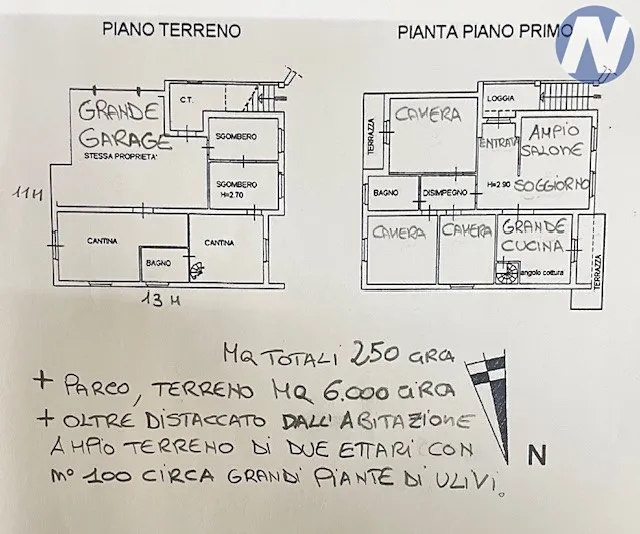 PIANO TERRENO
GRANDE
GARAGE
STESSA PROPRIETA'
C.T.
SGOMBERO
SGOMBERO
H=2.70
CANTINA
CANTINA
BAGNO
11 M
13 M
PIANTA PIANO PRIMO
N
TERRAZZA
CAMERA
LOGGIA
ENTRATA
AMPIO
SALONE
SOGGIORNO
H=2.90
BAGNO
DISIMPEGNO
CAMERA
CAMERA
GRANDE
CUCINA
angolo cottura
TERRAZZA
MQ TOTALI 250 CIRCA
+ PARCO, TERRENO MQ 6.000 CIRCA
+ OLTRE DISTACCATO DALL'ABITAZIONE
AMPIO TERRENO DI DUE ETTARI CON
N° 100 CIRCA GRANDI PIANTE DI ULIVI.
N